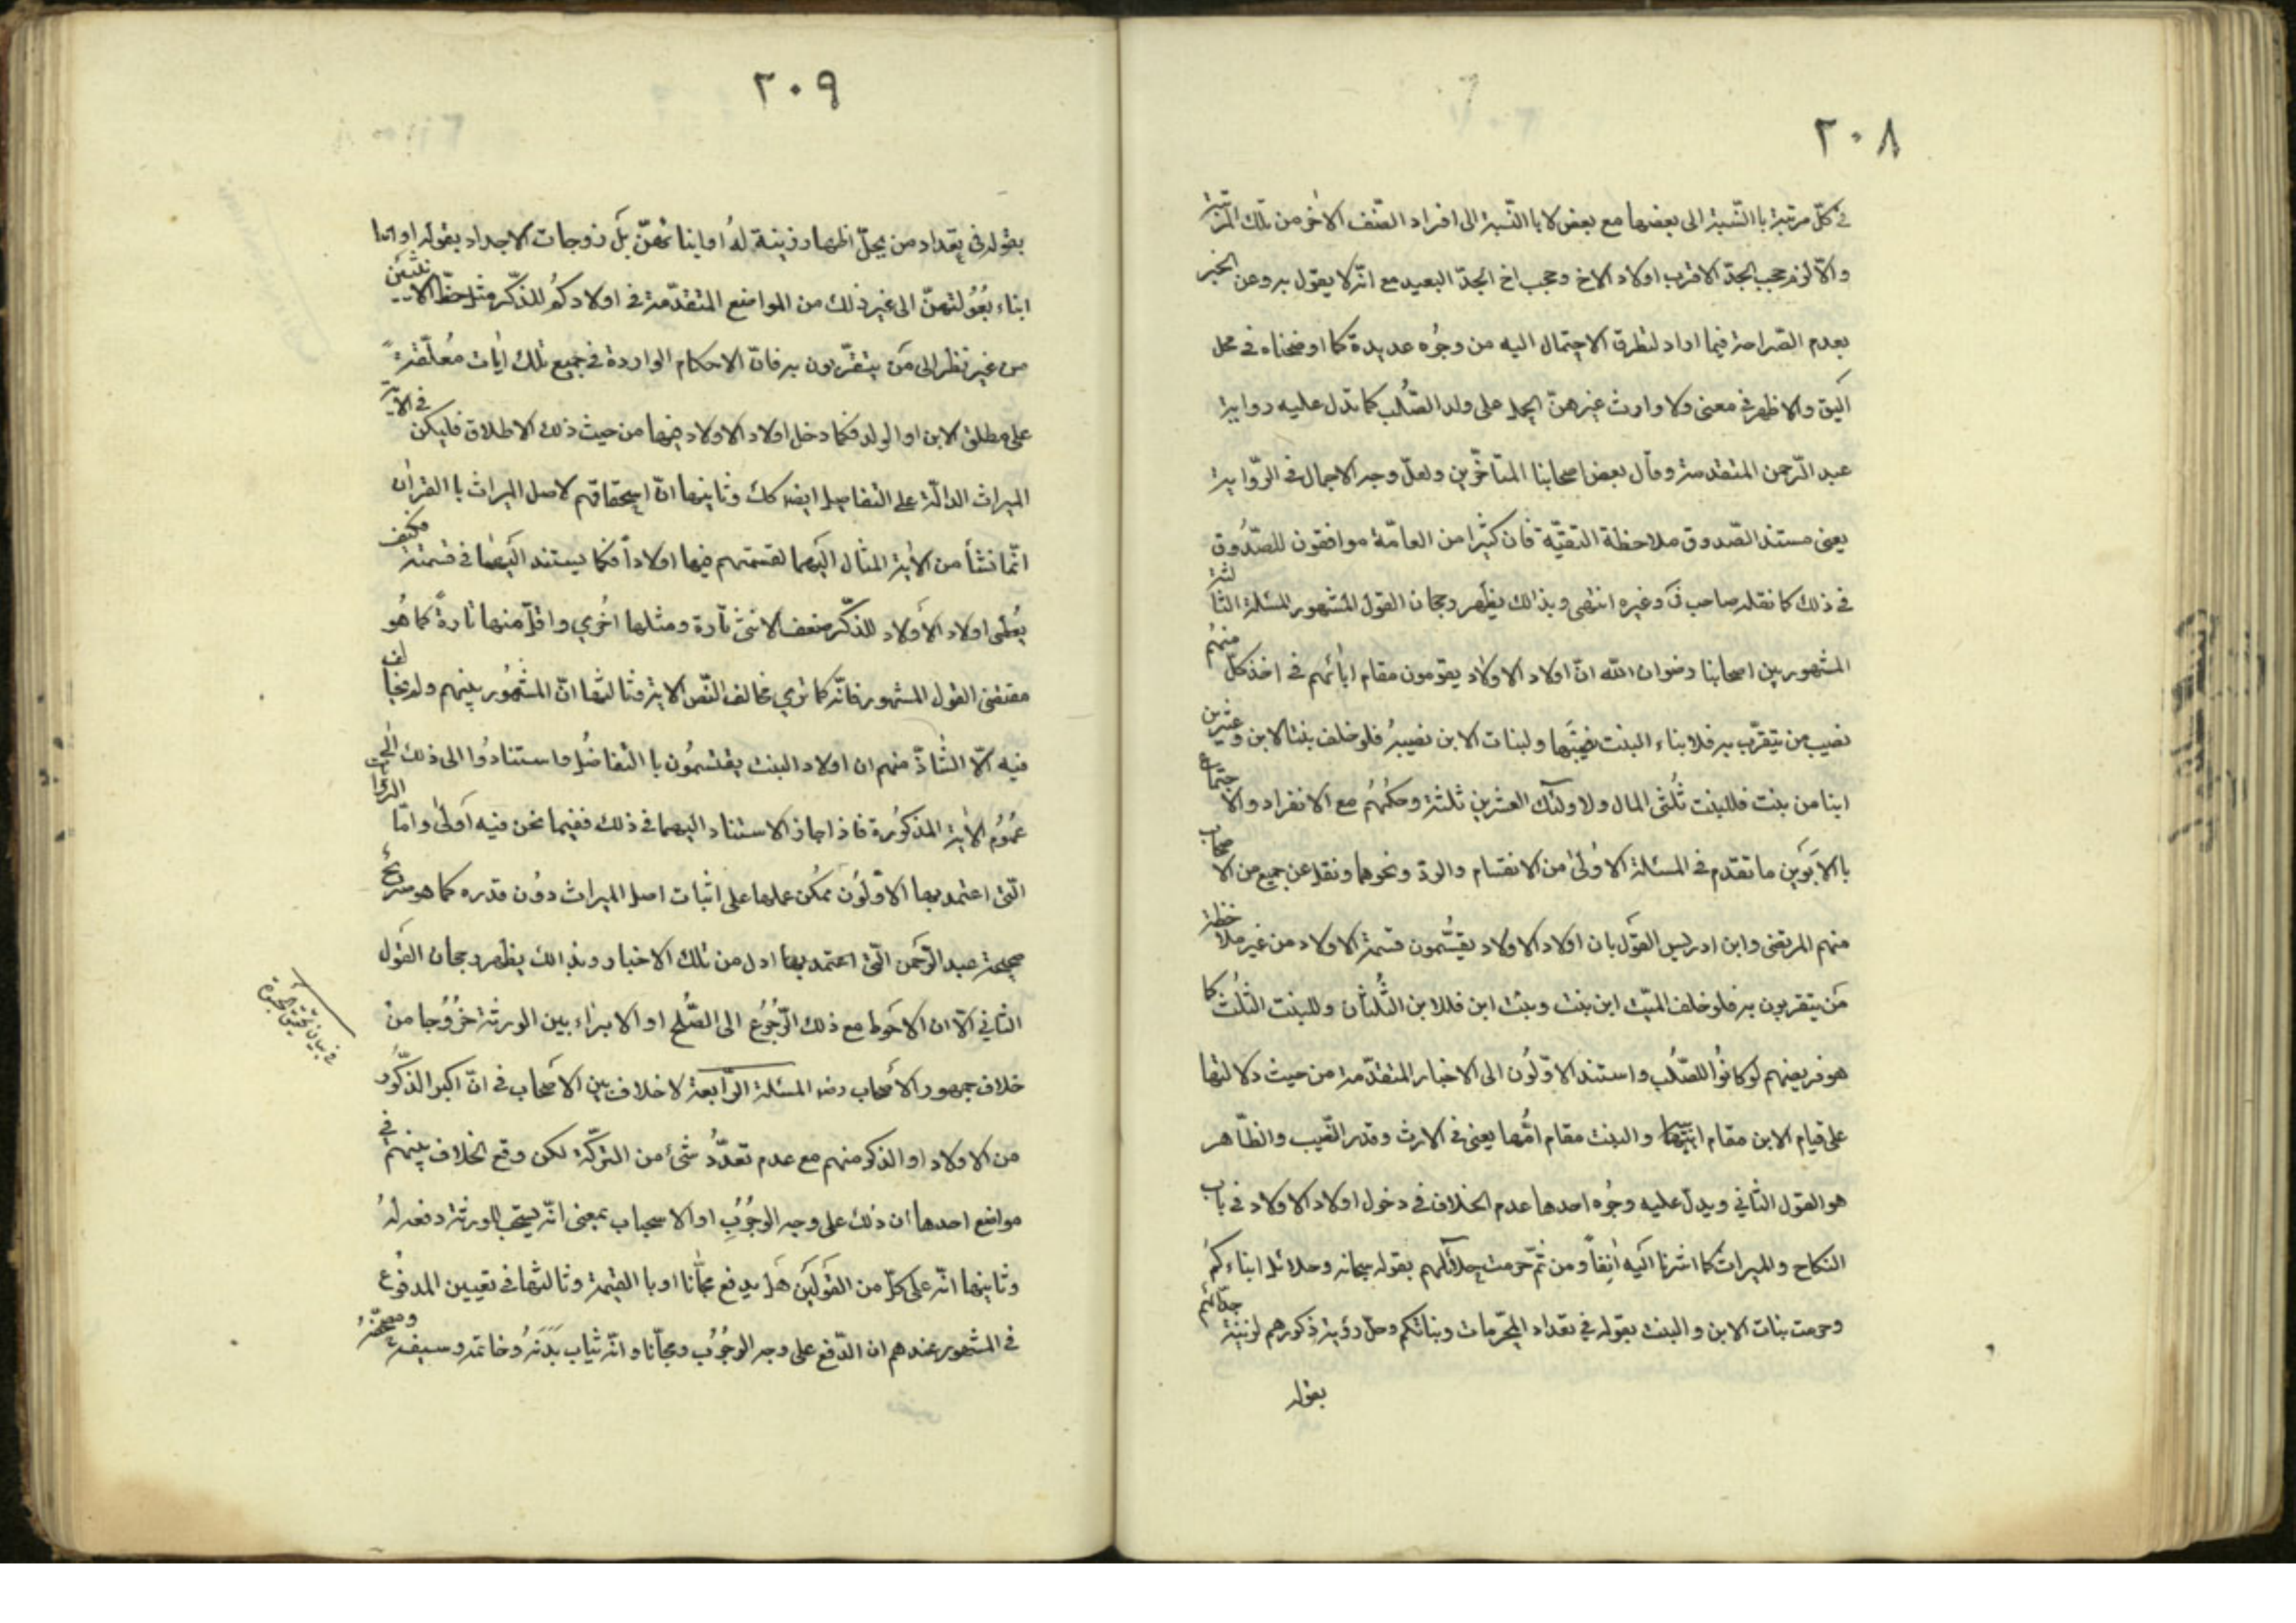 ٢٠٨
في كلّ مرتبة باالنّسبة الى بعضها مع بعض لا باالنّسبة الى افراد الصّنف الاخر من تلك المرتبة
والّا لزم حجب الجدّ الاقرب اولاد الاخ وحجب اخ الجدّ البعيد مع انّه لا يقول به وعن الخبر
بعدم الصّراحة فيما اراد لتطرق الاحتمال اليه من وجُوه عديدة كما اوضحناه في محل
اليق والاظهر في معنى ولا وارث غيرهنّ الحمل على ولد الصُّلب كما تدل عليه رواية
عبد الرّحمن المتقدمة وقال بعض اصحابنا المتأخّرين ولعلّ وجه الاجمال في الرّواية
يعنى مستند الصّدوق ملاحظة التقيّة فان كثيرا من العامّة موافقون للصّدُوق
في ذلك كما نقله صاحب ئل وغيره انتهى وبذالك يظهر رجحان القول المشهور المسئلة الثالثة
المشهور بين اصحابنا رضوان الله انّ اولاد الاولاد يقومون مقام ابائهم في اخذ كلّ منهُم
نصيب من يتقرّب به فلابناء البنت نصيبُها ولبنات الابن نصيبهُ فلو خلف بنت الابن وعشرين
ابنا من بنت فللبنت ثُلثى المال ولاولئك العشرين ثلثة وحكمُهُم مع الانفراد والاجتماع
باالابَوَين ما تقدم في المسئلة الاوُلىٰ من الانقسام والردّ ونحوهما ونقل عن جميع من الاصحاب
منهم المرتضى وابن ادريس القوَل بان اولاد الاولاد يقتسّمون قسمة الاولاد من غير ملاحظة
مَن يتقربون به فلو خلف الميّت ابن بنت وبنت ابن فللابن الثُّلثان وللبنت الثلُث كما
هو فريضتهم لو كانوُا للصّلُب واستند الاوّلوُن الى الاخبار المتقدّمة من حيث دلالتها
على قيام الابن مقام ابيها والبنت مقام امُّها يعنى في الارث وقدر النّصيب والظّاهر
هو القول الثاني ويدلّ عليه وجُوه احدها عدم الخلاف في دخول اولاد الاولاد في باب
النكاح والميراث كما اشرنا اليَه انِفاً ومن ثمّ حرمت حلآئلهم بقوله سبحانه وحلائل ابناءكمُ
وحرمت بنات الابن والبنت بقوله في تعداد المحرّمات وبناتكم وحلّ رؤية ذكورهم لزينة جدّاتهم
بقوله
٢٠٩
بقوله في تعداد من يحلّ اظهار زينة لهُ او ابنائهنّ بَل زوجات الاجداد بقوله او ابنا
ابناء بُعُولتهنّ الى غير ذلك من المواضع المتقدّمة في اولادكمُ للذكّر مثل حظّ الانثيين
من غير نظر الى مَن يتقرّبون به فانّ الاحكام الواردة في جميع تلك ايات مُعلّقة
على مطلق الابن او الولد فكما دخل اولاد الاولاد فيها من حيث ذلك الاطلاق فليكن في الاية
الميراث الدالّة على التفاصيل ايضا كك وثانيها انّ استحقاقهم لاصل الميراث باالقران
انّما نشأ من الاية المشار اليَها لقسمتهم فيها اولاداً فكما يستند اليَها في قسمتة فكيف
يعُطى اولاد الأولاد للذكّر ضعف الانثى تآرة ومثلها اخُري واقلّ منها تارةً كما هُو
مقتضى القول المشهور فانّه كما تري مخالف لنّص الاية وثالثها انّ المشهُور بينهم ولم يخالف
فيه الّا الشّاذّ منهم ان اولاد البنت يقتسمُون باالتفاضُل واستنادوُا الى ذلك الى
عمُوُم الاية المذكوُرة فاذا جاز الاستناد اليها في ذلك ففيما نحن فيه اَولىٰ وامّا الروايات
الّتى اعتمد بها الاوّلوُن ممكُن حملها على اثبات اصل الميراث دوُن قدره كما هو صريح
صحيحة عبد الرّحمَن الّتى اعتمد بها ادل من تلك الاخبار وبذالك يظهر رجحان القوَل
الثاني الّا ان الاحَوط مع ذلك الرّجوُعُ الى الصُّلح او الابرٰاء بين الورثة خرُوُجا من
خلاف جمهور الأصحاب رضه المسئلة الرّابعة لا خلاف بين الاصَحاب في انّ اكبر الذكّوُر
من الاولاد او الذكر منهم مع عدم تعدّدُ شَئ من التركَة لكن وقع الخلاف بينهم في
مواضع احدها ان ذلك على وجه الوجُوُبِ او الاستحباب بمعنى انّه يستحب للورثة دفعه لهُ
وثانيها انّه على كلّ من القوَليَن هَل يدفع مجّانا او باالقيمة وثالثها في تعيين المدفوُع
في المشهور عندهم ان الدّفع على وجه الوجُوُب ومجّانا وانّه ثياب بَدَنهُ وخاتمه وسيفه ومصحفهُ
في بيان تحقيق الحبوة